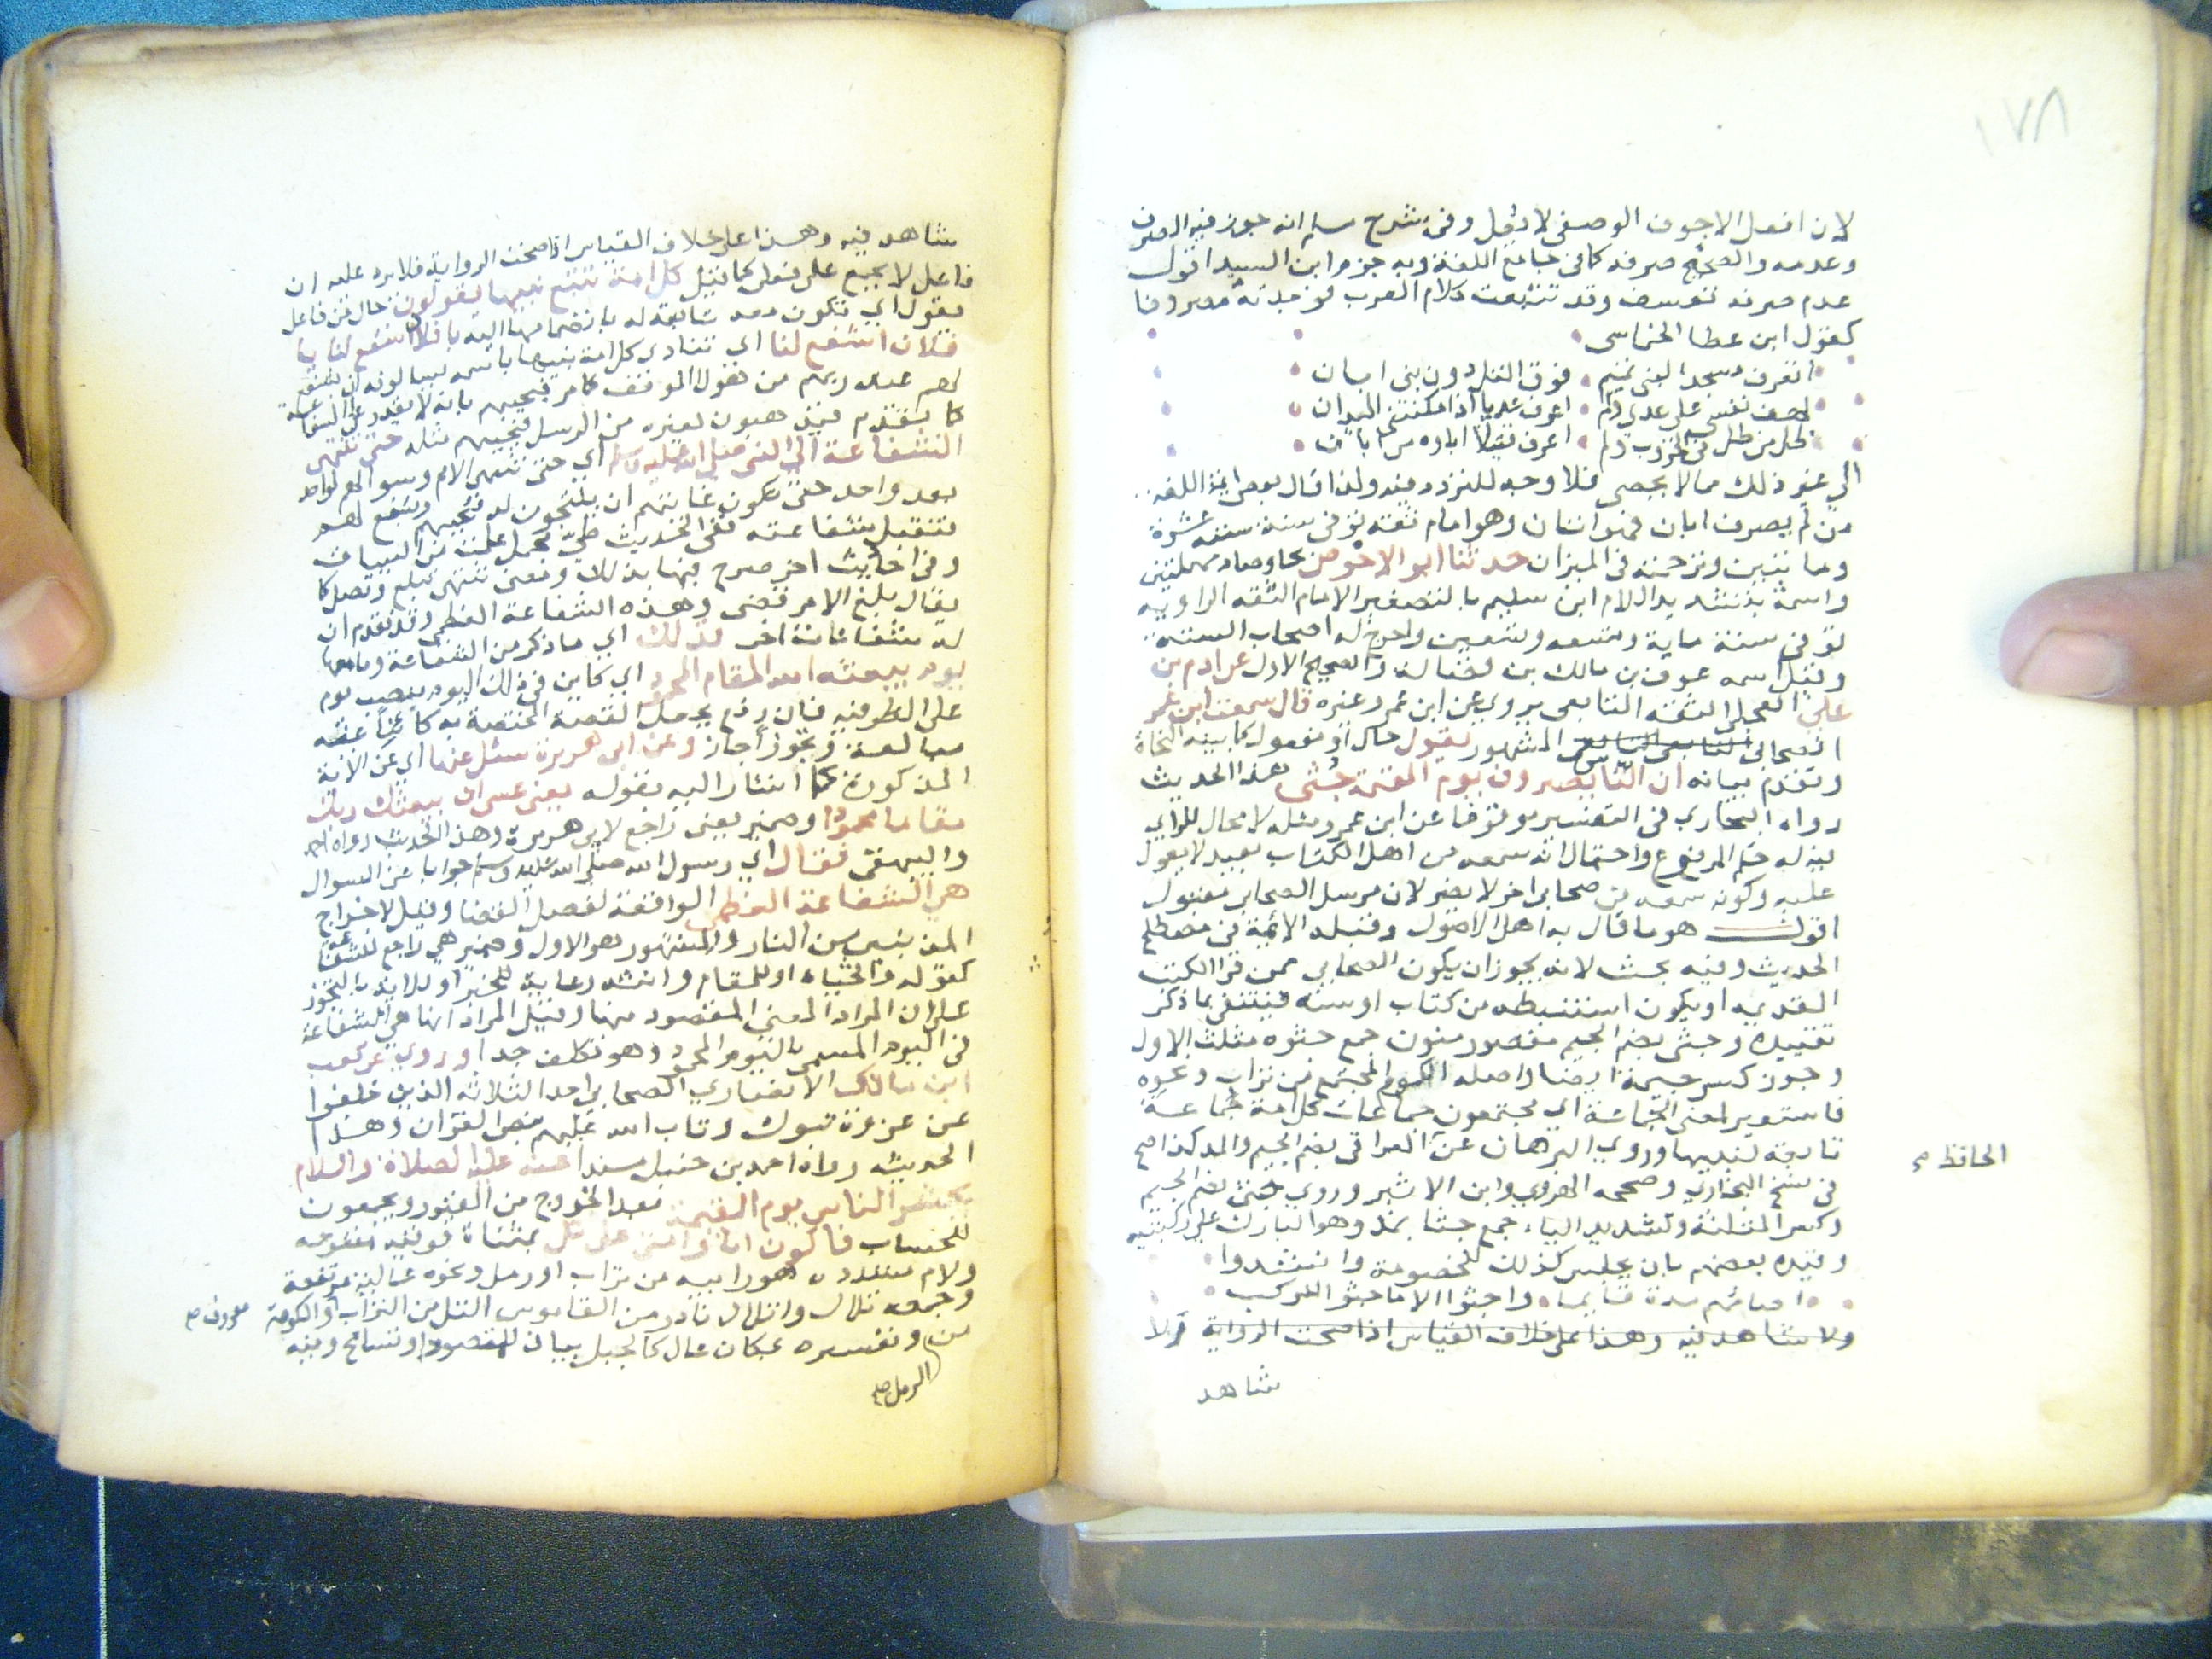 ١٧٨
لان افعل الاجوف الوصفى لا يعل وفى شرح مسلم انه جوز فيه الصرف
وعدمه والصحيح صرفه كما فى جامع اللغة وبه جزم ابن السيد اقول
عدم صرفه تعسف وقد تتبعت كلام العرب فوجدته مصروفا
كقول ابن عطا الخناسى
اتعرف مسجدا لبنى تميم فوق التل دون بنى ابان
لهف نفسى على عدى ولم اعرف عديا اذ امكنتنى اليدان
طل من طل فى الحروب ولم اعرف قتيلا اباره من ابان
الى غير ذلك مما لا يحصى فلا وجه للتردد فيه ولذا قال بعض ايمة اللغه
من لم يصرف ابان فهو اتان وهو امام ثقة توفى سنة ستة عشرة
وما تين وترجمته فى الميزان حدثنا ابو الاحوص بحاء وصاد مهملتين
واسمه بتشديد اللام ابن سليم بالتصغير الامام الثقه الراويه
توفى سنة ماية وتسعه وتسعين واخرج له اصحاب السته
وقيل اسمه عوف بن مالك بن نضاله والصحيح الاول عن ادم بن
على العجلى الثقة التابعى يروى عن ابن عمر وغيره قال سمعت ابن عمر
الصحابى المشهور يقول حال او مفعول كما بينه النحاة
وتقدم بيانه ان الناس يصيرون يوم القيمة جثى هذا الحديث
رواه البخارى فى التفسير موقوفا عن ابن عمر ومثله لا مجال للراى
فيه له حكم المرفوع واحتمال انه سمعه من اهل الكتاب بعيد لا يعول
عليه وكونه سمعه من صحابى اخر لا يضر لان مرسل الصحابى مقبول
اقول هو ما قال به اهل الاصول وقبله الائمة فى مصطلح
الحديث وفيه بحث لانه يجوز ان يكون الصحابى ممن قرا الكتب
القديمه او يكون استنبطه من كتاب او سنه فينتفى بما ذكر
تقييده وجثى بضم الجيم مقصور منون جمع جثوه مثلث الاول
وجوز كسر جيمه ايضا واصله الكوم المجتمع من تراب ونحوه
فاستعير لمعنى الجماعة اى مجتمعون جماعات كل امة جماعة
تابعة لنبيها وروى البرهان عن العراقى بضم الجيم والمد كذا صح
الحافظ صح
فى نسخ البخارى وصححه الهروى وابن الاثير وروى جثى بضم الجيم
وكسر المثلثة وتشديد الياء جمع جثا بمد وهو البارك على ركبتيه
وقيده بعضهم بان يجلس كذلك للخصومة وانشدوا
اخاصمهم مدة قايما واجثوا اذا ما جثوا للركب
ولا شاهد فيه وهذا على خلاف القياس اذا صحت الرواية فلا
شاهد
شاهد فيه وهذا على خلاف القياس اذا صحت الرواية فلا يرد عليه ان
فاعل لا يجمع على فعل كما قيل كل امة تتبع نبيها يقولون حال من فاعل
يقول اى تكون معه تابعة له بانضمامها اليه يا فلان اشفع لنا يا
فلان اشفع لنا اى تنادى كل امة نبيها باسمه يسالونه ان يشفع
لهم عند ربهم من هول الموقف كما مر فيجيبهم بانه لا يقدر على الشفاعة
كما تقدم فيذهبون لغيره من الرسل فيجيبهم مثله حتى تنتهى
الشفاعة الى النبى صلى الله عليه وسلم اى حتى تنتهى الامم وسوالهم لواحد
بعد واحد حتى يكون غايتهم ان يلتجون له فيجيبهم ويشفع لهم
فتقبل شفاعته ففى الحديث طى بجمل علمت من السياق
وفى احاديث اخر صرح فيها بذلك ومعنى تنتهى تبلغ وتصل كما
يقال بلغ الامر فضى وهذه الشفاعة العظمى وقد تقدم ان
له شفاعات اخر فذلك اى ما ذكر من الشفاعة وما معها
يوم يبعثه الله المقام المحمود اى كاين فى ذلك اليوم بنصب يوم
على الظرفيه فان رفع يجعل القصة المختصة به كانها عينه
مبالغة وتجوز اجاز وعن ابى هريرة سئل عنها اى عن الاية
المذكورة كما اشار اليه بقوله يعنى عسى ان يبعثك ربك
مقاما محمودا وضمير يعنى راجع لابى هريرة وهذا الحديث رواه احمد
والبيهقى فقال اى رسول الله صلى الله عليه وسلم جوابا عن السوال
هى الشفاعة العظمى الواقعة لفصل القضا وقيل لاخراج
المذنبين من النار والمشهور هو الاول وضمير هى راجع للشفاعة
كقوله والحياة او للمقام وانثه رعاية للخبر او للاية بالتجوز
على ان المراد المعنى المقصود منها وقيل المراد انها هى الشفاعة
فى اليوم المسمى باليوم المحمود وهو تكلف جدا وروى عن كعب
ابن مالك الانصارى الصحابى احد الثلاثه الذين خلفوا
عن غزوة تبوك وتاب الله عليهم بنص القران وهذا
الحديث رواه احمد بن حنبل مسندا عنه عليه الصلاة والسلام
يحشر الناس يوم القيمة بعد الخروج من القبور ويجمعون
للحساب فاكون انا وامتى على تل بمثناة فوقيه مفتوحه
ولام مشدده هو رابيه من تراب او رمل ونحوه عالية مرتفعة
وجمعه تلال واتلال نادر من القاموس التل من التراب او الكومة
معروف صح
من وتفسيره بمكان عال كالجبل بيان للمقصود او تسامح وفيه
الرمل صح